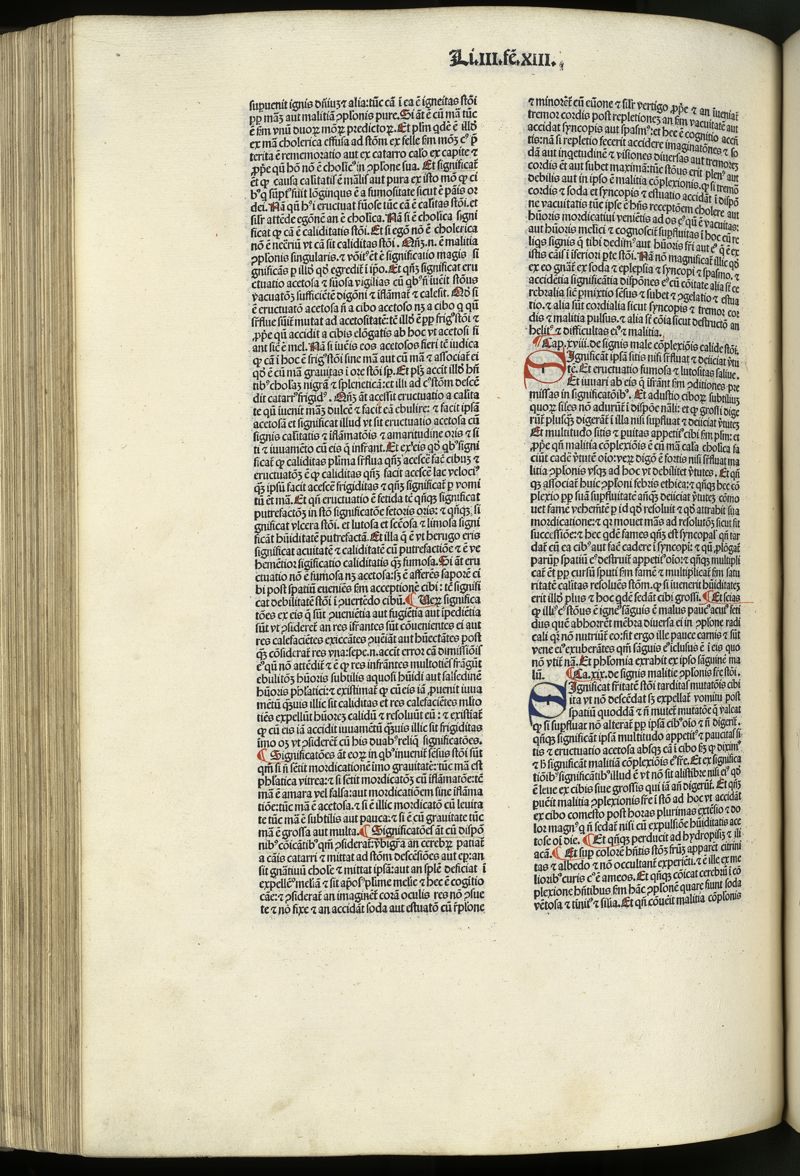 Li.III.fē.XIII.
supuenit ignis dn̄iuz ⁊ alia: tūc cā ī ea ē igneitas stōi
pp māz aut malitiā ꝯplonis pure. Si āt ē cū mā tūc
ē s̄m vnū duoꝝ moꝝ predictoꝝ. Et plīm qdē ē illō
ex mā cholerica effusa ad stōm ex felle s̄m moz cꝰ p̄
terita ē rememoratio aut ex catarro caso ex capite ⁊
ꝓpe qn̄ hō nō ē cholicꝰ in ꝯplone sua. Et significat
ēt ꝙ causa calitatis ē mālis aut pura ex isto mō ꝙ ci
dei. Nā qn̄ hꝰi eructuat fūose tūc cā ē calitas stōi. et
silr attēde egōne an ē cholica. Nā si ē cholica signi
ficat ꝙ cā ē caliditatis stōi. Et si egō nō ē cholerica
nō ē neēriū vt cā sit caliditas stōi. Qn̄z .n. ē malitia
ꝯplonis singularis. ⁊ vōit ēt ē significatio magis si
gnificās p illō qd̄ egredit ī ip̄o. Et qn̄z significat eru
ctuatio acetosa ⁊ fūosa vigilias cū qbꝰ n̄ īuēit stōus
vacuatōz sufficiētē digōni ⁊ īflamat ⁊ calefit. Nō si
ē eructuatō acetosa n̄ a cibo acetoso nz a cibo q̄ qn̄
ꝓpe qn̄ accidit a cibis elōgatis ab hoc vt acetosi fi
ant sic ē mel. Na si iuēis eos acetosos fieri tē iudica
ꝙ cā ī hoc ē frigꝰ stōi sine mā aut cū mā ⁊ associat ei
qd̄ ē cū mā grauitas ī ore stōi sp. Et plꝫ accit illō hn̄
tibꝰ cholaz nigrā ⁊ spleneticā: et illi ad cꝰ stōm descē
dit catarrꝰ frigidꝰ. Qn̄z āt accessit eructuatio a calita
te qn̄ iuenit māz dulcē ⁊ facit eā ebulire: ⁊ facit ipsā
acetosā et significat illud vt sit eructuatio acetosa cū
signis calitatis ⁊ īflamatōis ⁊ amaritudine oris ⁊ si
ti ⁊ iuuamēto cū eis q̄ infrant. Et ex eis qd̄ qbꝰ signi
ficat ꝙ calitas plima sr̄flua qn̄z acescē fac̄ cibuz ⁊
eructuatōz ē ꝙ caliditas qn̄z facit acescē lac velociꝰ
qz ipsū facit acescē frigiditas ⁊ qn̄z significat p vomi
tū ēt mā. Et qn̄ eructuatio ē fetida tē qn̄qz significat
putrefactōz in stō significatōe fetoris oris: ⁊ qn̄qz si
gnificat vlcera stōi. et lutosa et scēosa ⁊ limosa signi
ficāt hūiditatē putrefactā. Et illa q̄ ē vt herugo eris
significat acuitatē ⁊ caliditatē cū putrefactiōe ⁊ ē ve
hemētior significatio caliditatis qz fumosa. Si āt eru
ctuatio nō ē fumosa nz acetosa: sz ē afferēs saporē ci
bi post spatiū eueniēs s̄m acceptionē cibi: tē signifi
cat debilitatē stōi ī ꝯuertēdo cibū. ¶ Verꝝ significa
tōes ex eis q̄ sūt ꝓueniētia aut fugiētia aut īpediētia
sūt vt ꝯsideret an res īfrantes sūt cōuenientes ei aut
res calefaciētes exiccātes ꝓueniāt aut hūectātes post
qz cōsiderat res vna: sepe .n. accit error cā dimissiōis
eꝰ qn̄ nō attēdit ē ⁊ ꝙ res infrantes multotiēs frāgūt
ebulitōz hūoris subtilis aquosi hūidi aut salsedinē
hūoris phlatici: ⁊ existimat ꝙ cū eis iā ꝓuenit iuua
mētū qzuis illic sit caliditas et res calefaciētes mlto
tiēs expellūt hūorez calidū ⁊ resoluūt eū: ⁊ existiat
ꝙ cū eis iā accidit iuuamētū qzuis illic sit frigiditas
īmo oz vt ꝯsideret cū his duabꝰ reliq significatōes.
¶ Significatōes āt eoꝝ in qbꝰ inuenit sensus stōi sūt
qm̄ si n̄ sentit mordicationē imo grauitatē: tūc mā est
phlatica vitrea: ⁊ si sentit mordicatōz cū īflamatōe: tē
mā ē amara vel salsa: aut mordicatiōem sine īflama
tiōe: tūc mā ē acetosa. ⁊ si ē illic mordicatō cū leuita
te tūc mā ē subtilis aut pauca: ⁊ si ē cū grauitate tūc
mā ē grossa aut multa. ¶ Significatōes āt cū dispō
nibꝰ cōicātibꝰ qm̄ ꝯsiderat: vbi gr̄a an cerebꝝ patiat
a cāis catarri ⁊ mittat ad stōm descēsiōes aut epar: an
sit gn̄atiuū chole ⁊ mittat ipsā: aut an splē deficiat ī
expellēꝰ melīā ⁊ sit apōs plime melie ⁊ hec ē cogitio
cāe: ⁊ ꝯsiderat an imaginēt corā oculis res nō ꝯsue
te ⁊ nō fixe ⁊ an accidāt soda aut estuatō cū r̄plone
⁊ minorēt eū euōne ⁊ silr vertigo ꝓpe ⁊ an iueniat
tremor cordis post repletionez an s̄m vacuitatē aut
accidat syncopis aut spasmꝰ: et hec ē cogitio accn̄
tis: nā si repletio fecerit accidere imaginatōnes ⁊ so
dā aut inqetudinē ⁊ visiones diuersas aut tremorez
cordis ēt aut subet maximā: tūc stōus erit plenꝰ aut
debilis aut in ipso ē malitia cōplexionis. ꝙ si tremō
cordis ⁊ soda et syncopis ⁊ estuatio accidāt ī dispō
ne vacuitatis tūc ipse ē hn̄s receptōem cholere aut
hūoris mordicatiui veniētis ad os eꝰ qn̄ ē vacuitas:
aut hūoris melici ⁊ cognoscit supfluitas ī hoc cū re
liqs signis q̄ tibi dedimꝰ aut hūoris fri aut eꝰ q̄ ē ex
istis cāis ī iferiori pte stōi. Nā nō magnificat illic qd̄
ex eo gnāt ex soda ⁊ eplepsia ⁊ syncopi ⁊ spasmo. ⁊
accidētia significātia dispōnes eꝰ cū cōitate alia st̄ ce
rebralia sic̄ pmixtio sēsus ⁊ subet ⁊ ꝯgelatio ⁊ estua
tio. ⁊ alia sūt cordialia sicut syncopis ⁊ tremor cor
dis ⁊ malitia pulsus. ⁊ alia st̄ cōia sicut destructō an
helitꝰ ⁊ difficultas eiꝰ ⁊ malitia.
¶ Cap. xviii. de signis male cōplexiōis calide stōi.
Significāt ipsā sitis nisi sr̄fluat ⁊ deiiciat v̄tu
tē. Et eructuatio fumosa ⁊ lutositas saliue.
Et iuuari ab eis q̄ īfrāt s̄m ꝯditiones pre
missas in significatōibꝰ. Et adustio ciboꝝ subtiliuz
quoꝝ siles nō adurūt ī dispōe nāli: et ꝙ grossi dige
rūt plusqz digerāt ī illa nisi supfluat ⁊ deiiciat v̄tutes
Et multitudo sitis ⁊ puitas appetitꝰ cibi s̄m plm̄: et
ꝓpe qn̄ malitia cōplexiōis ē cū mā cala cholica fa
ciūt cadē v̄tutē oīo: veꝝ digō ē fortis nisi sr̄fluat ma
litia ꝯplonis vsqz ad hoc vt debilitet v̄tutes. Et qn̄
qz associat huic ꝯploni febris ethica: ⁊ qn̄qz hec cō
plexio pp suā supfluitatē anteqz deiiciat v̄tutes cōmo
uet famē vehemētē p id qd̄ resoluit ⁊ qd̄ attrahit sua
mordicatione: ⁊ qr mouet mās ad resolutōz sicut fit
succsiōe: ⁊ hec qdē fames qn̄z est syncopalꝰ qn̄ tar
dat cū ea cibꝰ aut fac̄ cadere ī syncopi: ⁊ qn̄ plōgat
parūp spatiū eꝰ destruit appetiꝰ oīo: ⁊ qn̄qz multipli
cat ēt pp cursū sputi s̄m famē ⁊ multiplicat s̄m satu
ritatē calitas resoluēs stōm. ꝙ si iuuenit hūiditates
erit illō plus ⁊ hoc qdē sedāt cibi grossi. ¶ Et scias
ꝙ illiꝰ cꝰ stōus ē igneꝰ sāguis ē malus paucꝰ acutꝰ feti
dus quē abhorrēt mēbra diuersa ei in ꝯplone radi
cali qꝛ nō nutriūt eo: fit ergo ille pauce carnis ⁊ sūt
vene eiꝰ exuberātes qm̄ sāguis eꝰ iclusus ē ī eis quo
nō vtīt nā. Et phlomia extrahit ex ipso sāguinē ma
lū. ¶ Ca. xix. de signis malitie ꝯplonis fre stōi.
Significat fritatē stōi tarditas mutatōis cibi
ita vt nō descēdat sz expellat vomitu post
spatiū quoddā ⁊ n̄ mutet mutatōe q̄ valeat
ꝙ si supfluat nō alterat pp ipsā cibꝰ oīo ⁊ n̄ digerit.
qn̄qz significāt ipsā multitudo appetitꝰ ⁊ paucitas si
tis ⁊ eructuatio acetosa absqz cā ī cibo s̄m ꝙ dixim̄ꝰ
⁊ h̄ significat malitiā cōplexiōis eꝰ fre. Et ex significa
tiōibꝰ significātibꝰ illud ē vt nō sit alūstibre nisi eiꝰ qd̄
ē leue ex cibis siue grossis qui iā an̄ digerūt. Et qn̄z
puēit malitia ꝯplexionis fre ī stō ad hoc vt accidat
ex cibo comesto post horas plurimas extēsio ⁊ do
lor magnꝰ q̄ n̄ sedat nisi cū expulsiōe hūiditatis ace
tose oī die. ¶ Et qn̄qz perducit ad hydropisiz ⁊ ili
acā. ¶ Et sup colorē hn̄tis stōz frūz apparēt citrini
tas ⁊ albedo ⁊ nō occultant experiēti. ⁊ ē ille ex me
lioribꝰ curis eꝰ ē ameos. Et qn̄qz cōicat cerebrū ī cō
plexione hn̄tibus s̄m hāc ꝯplonē quare fiunt soda
vētosa ⁊ tinitꝰ ⁊ silia. Et qn̄ cōuēit malitia cōplonis